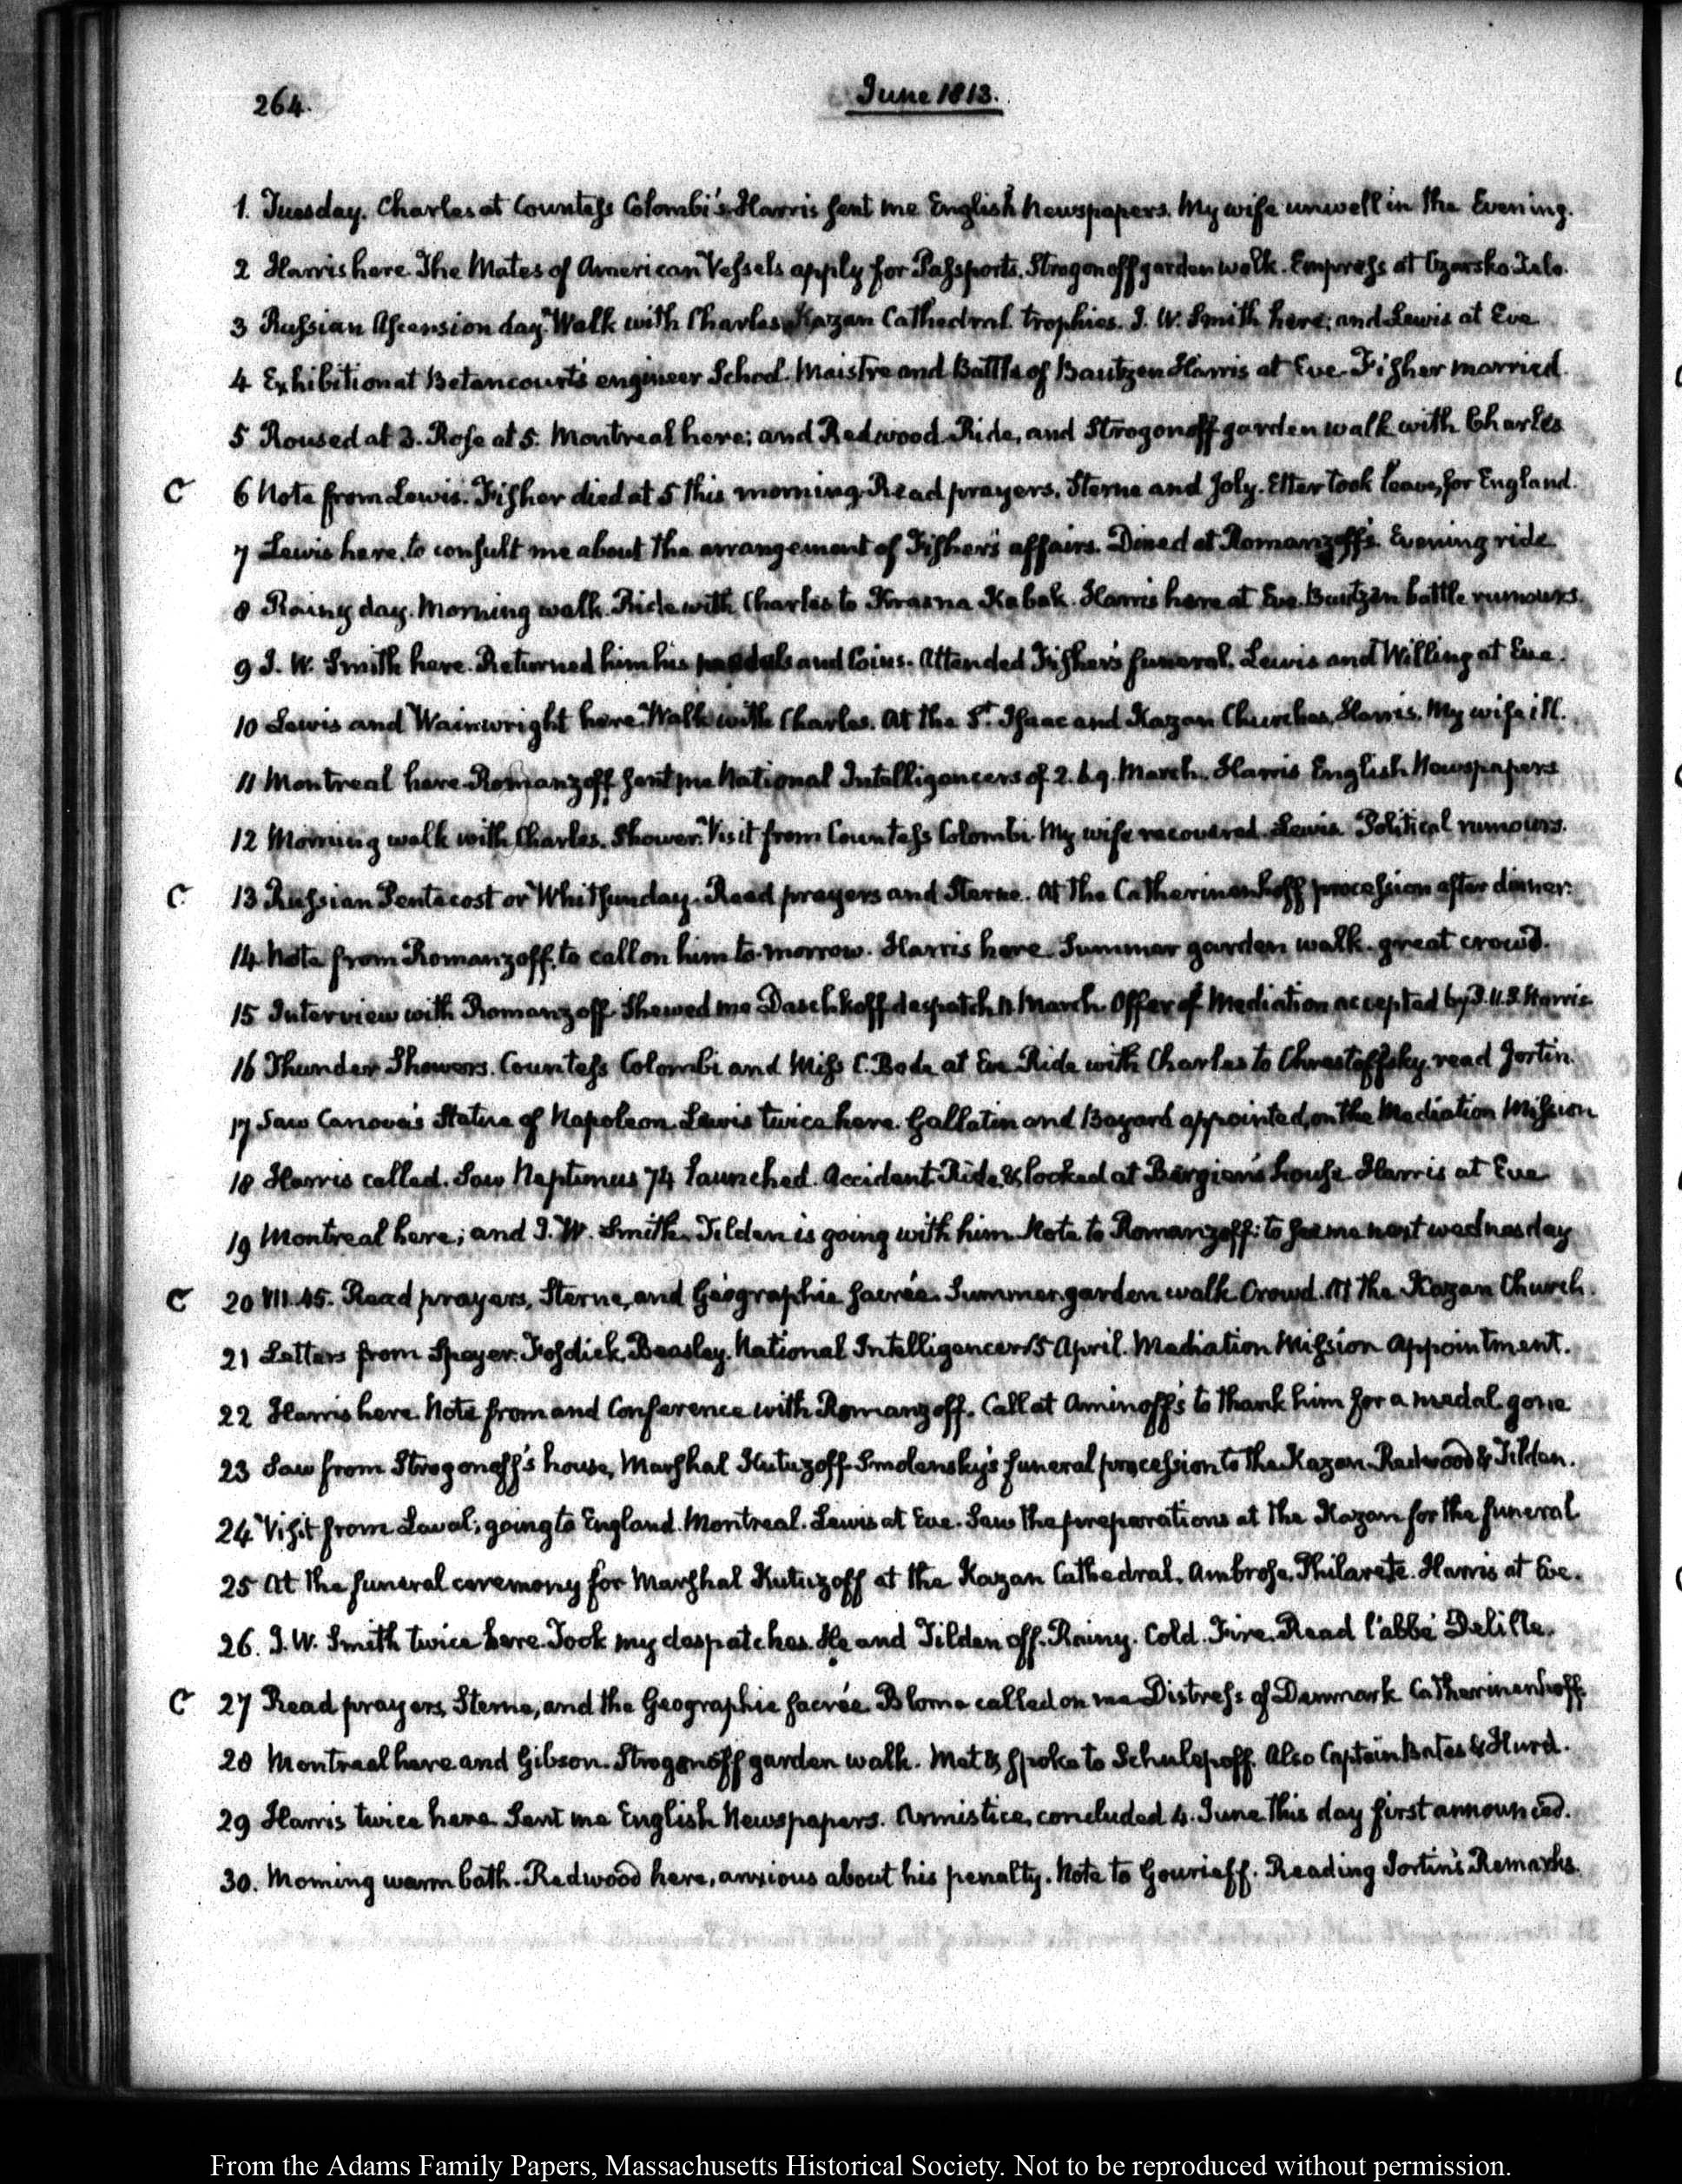 264.
June 1813.
1. Tuesday. Charles at Countess Colombi's. Harris sent me English Newspapers. My wife unwell in the Evening.
2 Harris here. The Mates of American Vessels apply for Passports. Strogonoff garden walk. Empress at Czarsko-Zelo.
3 Russian Ascension day. Walk with Charles. Kazan Cathedral trophies. J. W. Smith here; and Lewis at Eve
4 Exhibition at Betancourt's engineer School. Maistre and Battle of Bautzen. Harris at Eve. Fisher married.
5 Roused at 3. Rose at 5. Montreal here; and Redwood. Ride, and Strogonoff garden walk with Charles
C 6 Note from Lewis. Fisher died at 5 this morning. Read prayers. Sterne and Joly. Etter took leave, for England.
7 Lewis here, to consult me about the arrangement of Fisher's affairs. Dined at Romanzoff's. Evening ride.
8 Rainy day. Morning walk. Ride with Charles to Krasna Kabak. Harris here at Eve. Bautzen battle rumours.
9 J. W. Smith here. Returned him his medals and Coins. Attended Fisher's funeral. Lewis and Willing at Eve.
10 Lewis and Wainwright here. Walk with Charles. At the St. Isaac and Kazan Churches. Harris. My wife ill.
11 Montreal here. Romanzoff sent me National Intelligencers of 2. 6. 9. March. Harris English Newspapers
12 Morning walk with Charles. Shower. Visit from Countess Colombi. My wife recovered. Lewis. Political rumours.
C 13 Russian Pentecost or Whitsunday. Read prayers and Sterne. At the Catherinenhoff procession after dinner.
14 Note from Romanzoff, to call on him to-morrow. Harris here. Summer garden walk. great crowd.
15 Interview with Romanzoff. Shewed me Daschkoff despatch 11 March. Offer of Mediation accepted by P.U.S. Harris
16 Thunder Showers. Countess Colombi and Miss C. Bode at Eve. Ride with Charles to Chrestoffsky. read Jortin.
17 Saw Canova's Statue of Napoleon. Lewis twice here. Gallatin and Bayard appointed, on the Mediation Mission
18 Harris called. Saw Neptunus 74 launched. Accident. Ride, & looked at house. Harris at Eve
19 Montreal here; and J. W. Smith. Tilden is going with him. Note to Romanzoff: to see me next wednesday
C 20 VII. 45. Read prayers, Sterne, and Géographie sacrée. Summer garden walk. Crowd. At the Kazan Church.
21 Letters from Speyer. Fosdick. Beasley. National Intelligencer 15 April. Mediation Mission appointment.
22 Harris here. Note from and Conference with Romanzoff. Call at Aminoff's to thank him for a medal. gone
23 Saw from Strogonoff's house, Marshal Kutuzoff-Smolensky's funeral procession to the Kazan. Redwood & Tilden.
24 Visit from Laval; going to England. Montreal. Lewis at Eve. Saw the preparations at the Kazan for the funeral
25 At the funeral ceremony for Marshal Kutuzoff at the Kazan Cathedral. Ambrose, Philarete. Harris at Eve.
26. J. W. Smith twice here. Took my despatches. He and Tilden off. Rainy. Cold. Fire. Read l'abbé Delille.
C 27 Read prayers, Sterne, and the Geographie sacrée. Blome called on me. Distress of Denmark. Catherinenhoff.
28 Montreal here and Gibson. Strogonoff garden walk. Met & spoke to Schulepoff. Also Captain Bates & Hurd.
29 Harris twice here. Sent me English Newspapers. Armistice, concluded 4. June this day first announced.
30. Morning warm bath. Redwood here, anxious about his penalty. Note to Gourieff. Reading Jortin's Remarks.
From the Adams Family Papers, Massachusetts Historical Society. Not to be reproduced without permission.